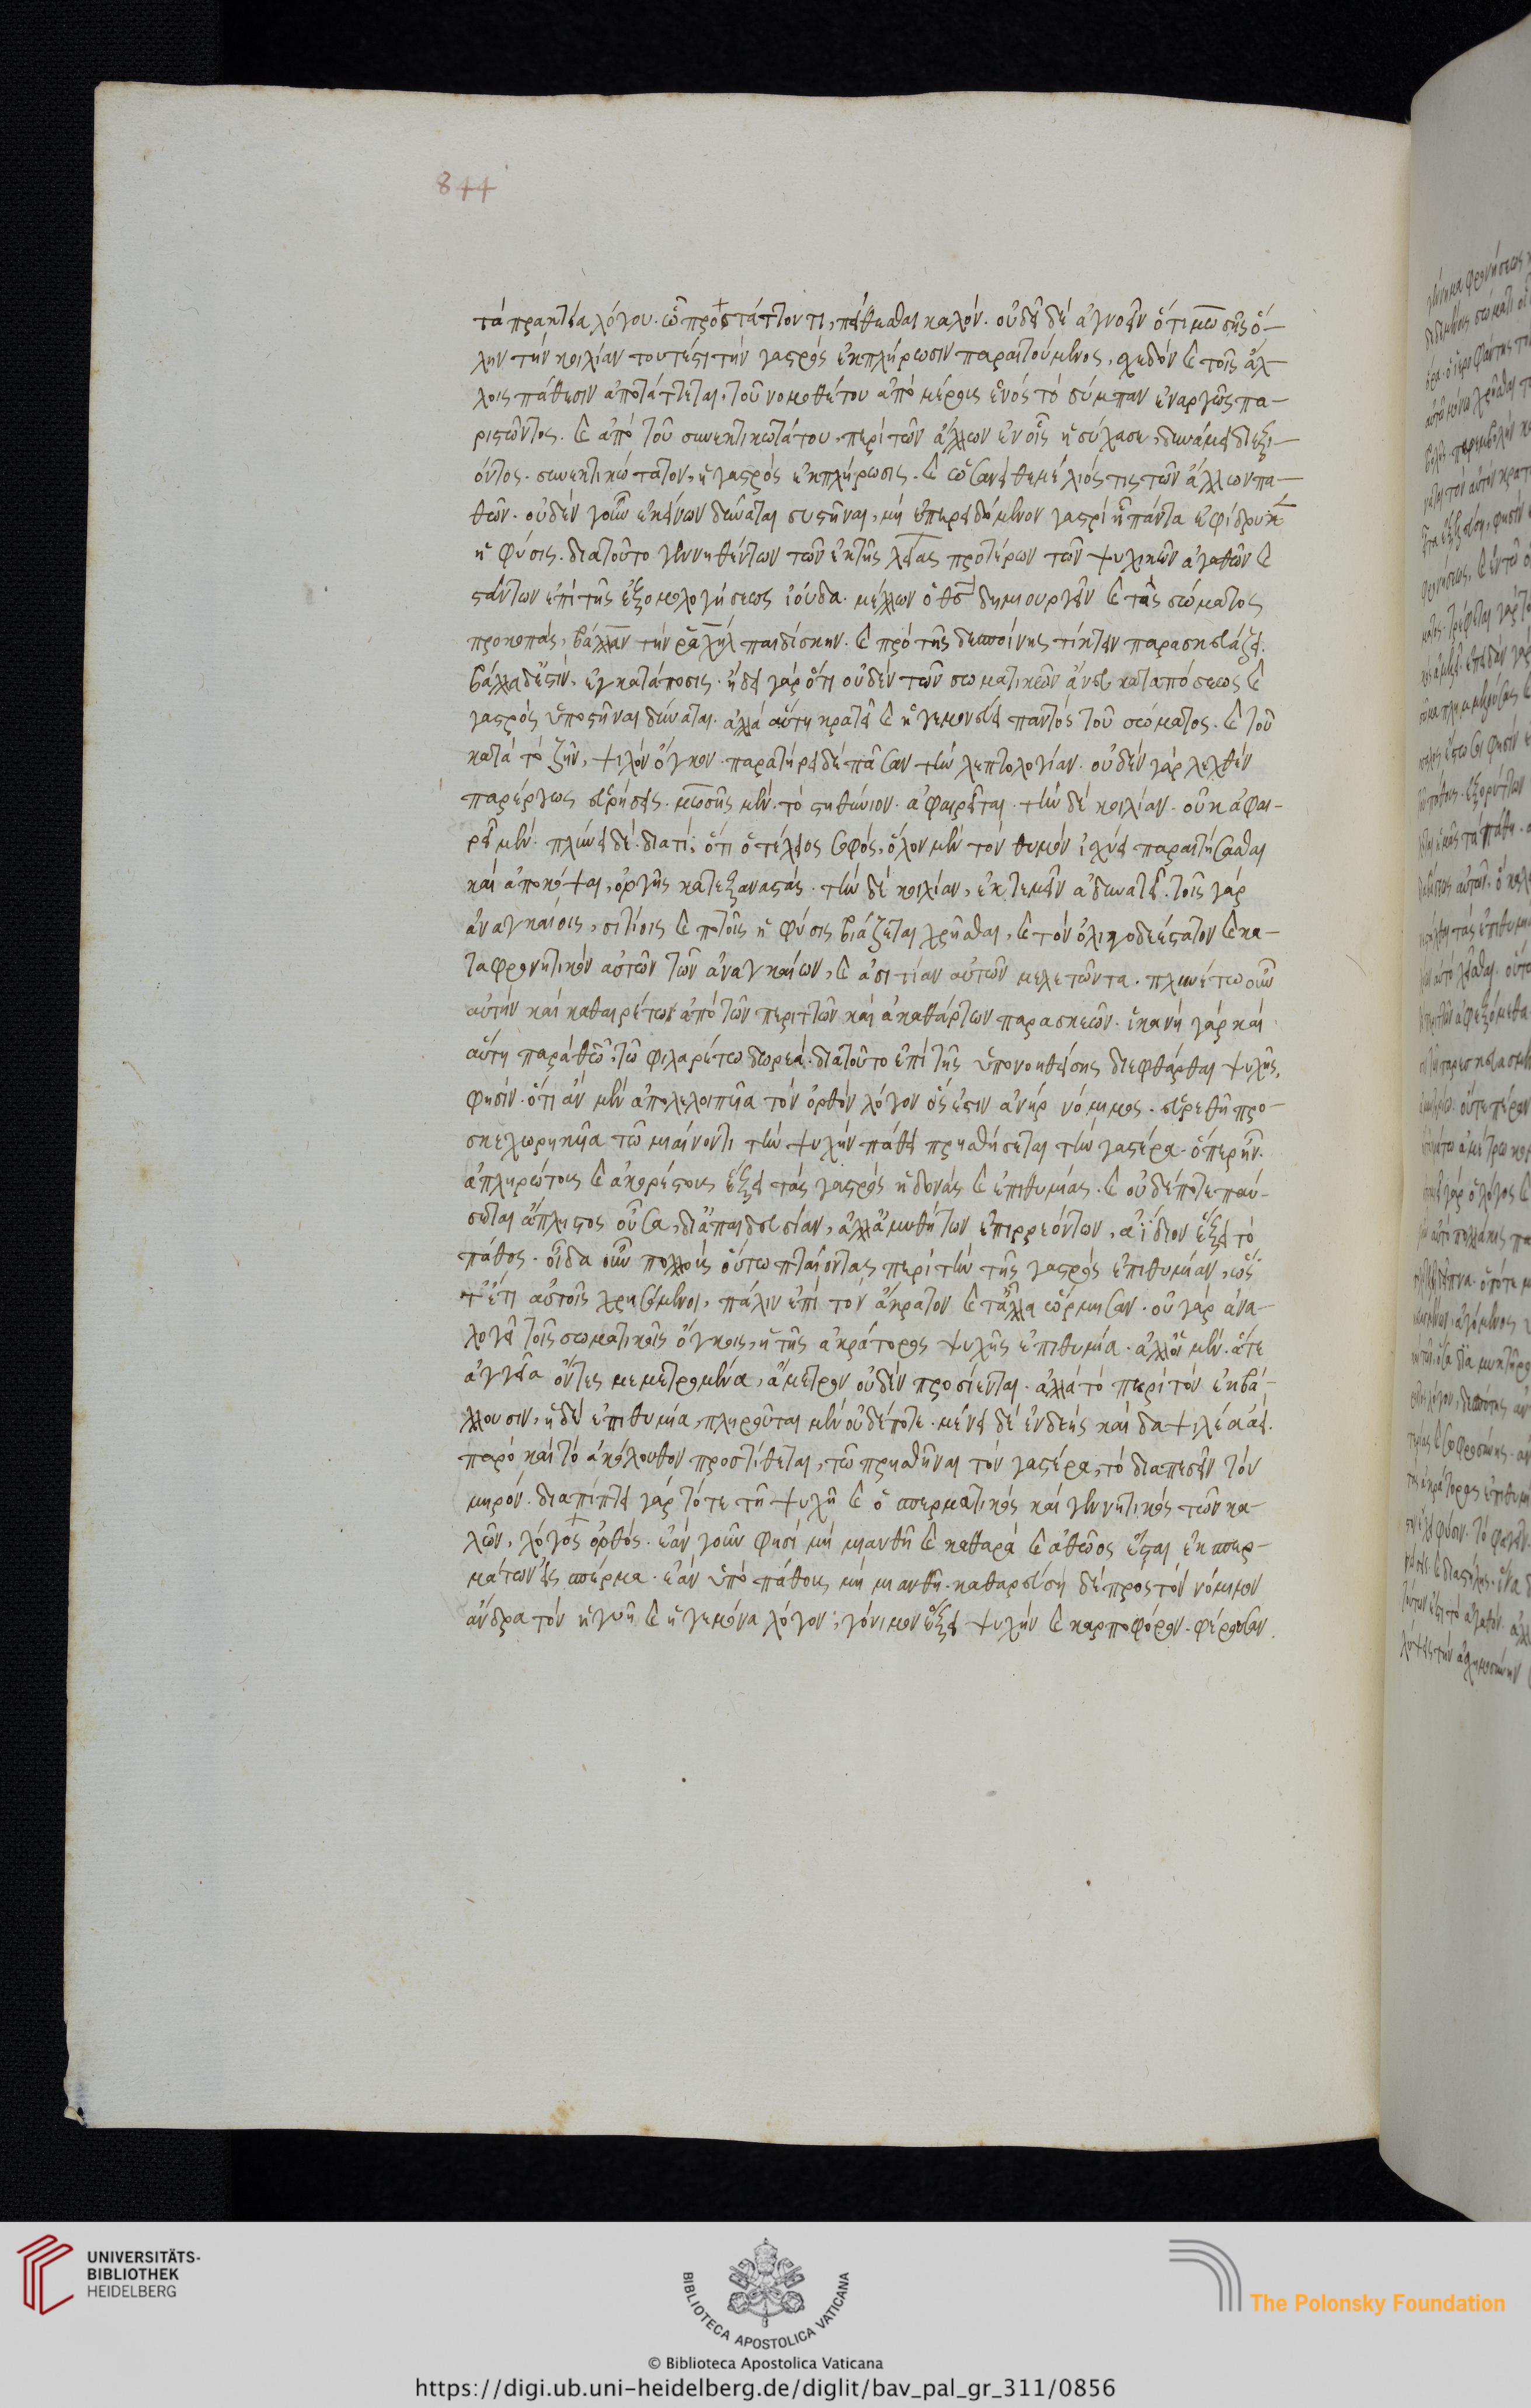 844
τὰ πρακτέα λόγου. ὧ προστάττοντι, πείθεσθαι καλόν. οὐ δεῖ δὲ ἀγνοεῖν ὅτι μωσῆς ὅ-
λην τὴν κοιλίαν τουτέστι τὴν γαστρὸς ἐκπλήρωσιν παραιτούμενος, σχεδὸν καὶ τοῖς ἄλ-
λοις πάθεσιν ἀποτάττεται, τοῦ νομοθέτου ἀπὸ μέρους ἑνὸς τὸ σύμπαν ἐναργῶς πα-
ριστῶντος. καὶ ἀπὸ τοῦ συνεκτικωτάτου, περὶ τῶν ἄλλων ἐν οἷς ἡσύχασε, δυνάμει διεξι-
όντος. συνεκτικώτατον, ἡ γαστρὸς ἐκπλήρωσις. καὶ ὡσανεὶ θεμέλιός τις τῶν ἄλλων πα-
θῶν. οὐδὲν γοῦν ἐκείνων δύναται συστῆναι, μὴ ἐπερειδόμενον γαστρὶ ἧ πάντα ἐφίδρυκεν
ἡ φύσις. διατοῦτο γεννηθέντων τῶν ἐκ τῆς λείας προτέρων τῶν ψυχικῶν ἀγαθῶν καὶ
στάντων ἐπὶ τῆς ἐξομολογήσεως ἰούδα. μέλλων ὁ θσ δημιουργεῖν καὶ τὰς σώματος
προκοπὰς, βάλλαν τὴν ραχὴλ παιδίσκην. καὶ πρὸ τῆς δεσποίνης τίκτειν παρασκευάζει.
βάλλα δέ ἐστιν, ἐγκατάποσις. ἤδει γὰρ ὅτι οὐδὲν τῶν σωματικῶν ἄνευ καταπόσεως καὶ
γαστρὸς ὑποστῆναι δύναται. ἀλλὰ αὕτη κρατεῖ καὶ ἡγεμονεύει παντὸς τοῦ σώματος. καὶ τοῦ
κατὰ τὸ ζῆν, ψιλὸν ὄγκον. παρατήρει δὲ πᾶσαν τὴν λεπτολογίαν. οὐδὲν γὰρ λεχθὲν
παρέργως εὑρήσεις. μωσῆς μὲν. τὸ στηθύνιον. ἀφαιρεῖται. τὴν δὲ κοιλίαν. οὐκ ἀφαι-
ρεῖ μὲν. πλύνει δέ. διατί; ὅτι ὁ τέλειος σοφὸς, ὅλον μὲν τὸν θυμὸν ἰσχύει παραιτήσασθαι
καὶ ἀποκόψαι, ὀργῆς κατεξαναστάς. τὴν δὲ κοιλίαν, ἐκτεμεῖν ἀδυνατεῖ. τοῖς γὰρ
ἀναγκαίοις, σιτίοις καὶ ποτοῖς ἡ φύσις βιάζεται χρῆσθαι, καὶ τὸν ὀλιγοδεέστατον καὶ κα-
ταφρονητικὸν αὐτῶν τῶν ἀναγκαίων, καὶ ἀσιτίαν αὐτῶν μελετῶντα. πλυνέτω οὖν
αὐτὴν καὶ καθαιρέτω ἀπὸ τῶν περιττῶν καὶ ἀκαθάρτων παρασκευῶν. ἱκανὴ γὰρ καὶ
αὕτη παρὰ θεοῦ τῶ φιλαρέτω δωρεά. διατοῦτο ἐπὶ τῆς ὑπονοηθείσης διεφθάρθαι ψυχῆς,
φησίν. ὅτι ἂν μὲν ἀπολελοιπυῖα τὸν ὀρθὸν λόγον ὅς ἐστιν ἀνὴρ νόμιμος. εὑρεθῆ προ-
σκεχωρηκυῖα τῶ μιαίνοντι τὴν ψυχὴν πάθει πρησθήσεται τὴν γαστέρα. ὅπερ ἦν.
ἀπληρώτους καὶ ἀκορέστους ἕξει τὰς γαστρὸς ἡδονὰς καὶ ἐπιθυμίας. καὶ οὐδέποτε παύ-
σεται ἄπληστος οὖσα, δι' ἀπαιδευσίαν, ἀλλ' ἀμυθήτων ἐπιρρεόντων, ἀΐδιον ἕξει τὸ
πάθος. οἶδα οὖν πολλοὺς οὕτω πταίοντας περὶ τὴν τῆς γαστρὸς ἐπιθυμίαν, ὡς
ἔτι αὐτοῖς χρησάμενοι, πάλιν ἐπὶ τὸν ἄκρατον καὶ τἄλλα ὥρμησαν. οὐ γὰρ ἀνα-
λογεῖ τοῖς σωματικοῖς ὄγκοις, ἡ τῆς ἀκράτορος ψυχῆς ἐπιθυμία. ἀλλ' οἱ μὲν. ἅτε
ἀγγεῖα ὄντες μεμετρημένα, ἄμετρον οὐδὲν προσίενται. ἀλλὰ τὸ περιττὸν ἐκβά-
λλουσιν, ἡ δὲ ἐπιθυμία, πληροῦται μὲν οὐδέποτε. μένει δὲ ἐνδεὴς καὶ διψαλέα ἀεί.
παρὸ καὶ τὸ ἀκόλουθον προστίθεται, τῶ πρησθῆναι τὸν γαστέρα, τὸ διαπεσεῖν τὸν
μηρόν. διαπίπτει γὰρ τότε τῆ ψυχῆ καὶ ὁ σπερματικὸς καὶ γεννητικὸς τῶν κα-
λῶν, λόγος ὀρθός. ἐὰν γοῦν φησὶ μὴ μιανθῆ καὶ καθαρὰ καὶ ἀθῶος ἔσται ἐκσπερ-
ματιεῖ σπέρμα. ἐὰν ὑπὸ πάθους μὴ μιανθῆ. καθαρεύση δὲ πρὸς τὸν νόμιμον
ἄνδρα τὸν ὑγιῆ καὶ ἡγεμόνα λόγον, γόνιμον ἕξει ψυχὴν καὶ καρποφόρον. φέρουσαν
UNIVERSITÄTS-
BIBLIOTHEK
HEIDELBERG
BIBLIOTECA APOSTOLICA VATICANA
The Polonsky Foundation
© Biblioteca Apostolica Vaticana
https://digi.ub.uni-heidelberg.de/diglit/bav_pal_gr_311/0856